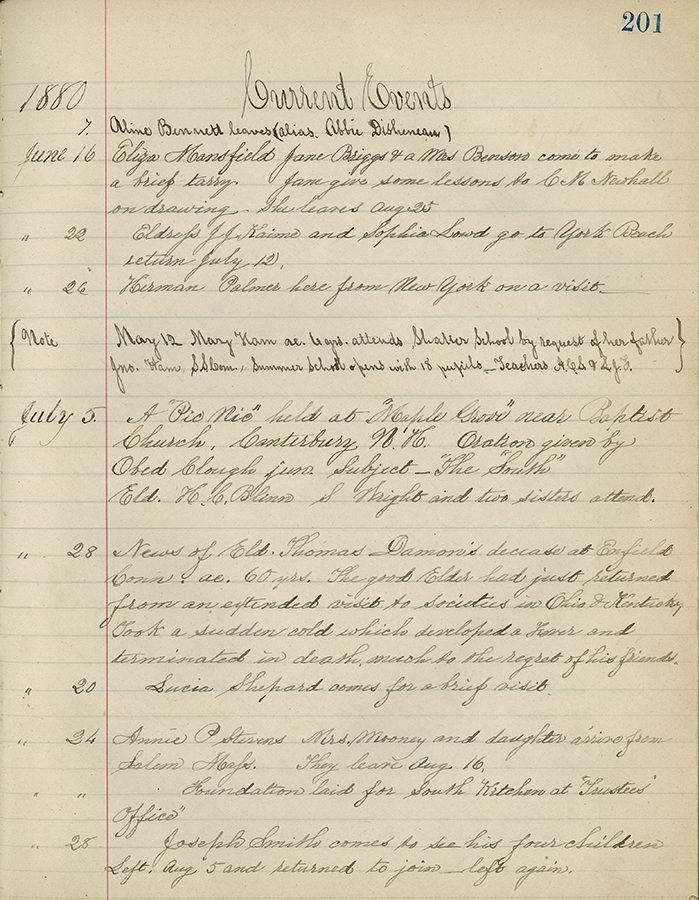 201
1880 Current Events
7. Aline Bennett leaves (alias. Abbie Disheneau)
June 16 Eliza Mansfield Jane Briggs & a Mrs Benson come to make
a brief tarry. Jane give some lessons to C M Newhall
on drawing - She leaves Aug 25
" 22 Eldress J J Kaime and Sophia Lowd go to York Beach
return July 12.
" 26 Herman Palmer here from New York on a visit.
{ Note May 12 Mary Ham ae. 6 yrs. attends Shaker School by request of her father }
Jno. Ham, Summer School opens with 18 pupils - Teachers A.C.S &
July 5. A "Pic Nic" held at "Maple Grove" near Baptist
Church, Canterbury, N.H. Oration given by
Obed Clough jun. Subject - "The "South"
Eld. H. C. Blinn S Wright and two sisters attend.
" 28 News of Eld. Thomas Damon's decease at Enfield
Conn. ae. 60 yrs. The good Elder had just returned
from an extended visit to societies in Ohio & Kentucky
Took a sudden cold which developed a Fever and
terminated in death, much to the regret of his friends.
" 20 Lucia Shepard comes for a brief visit.
" 24 Annie P Stevens Mrs. Mooney and daughter arrive from
Salem Mass. They leave Aug 16.
" " Foundation laid for South Kitchen at "Trustees'
Office"
" 28 Joseph Smith comes to see his four children
Left. Aug 5 and returned to join - left again.